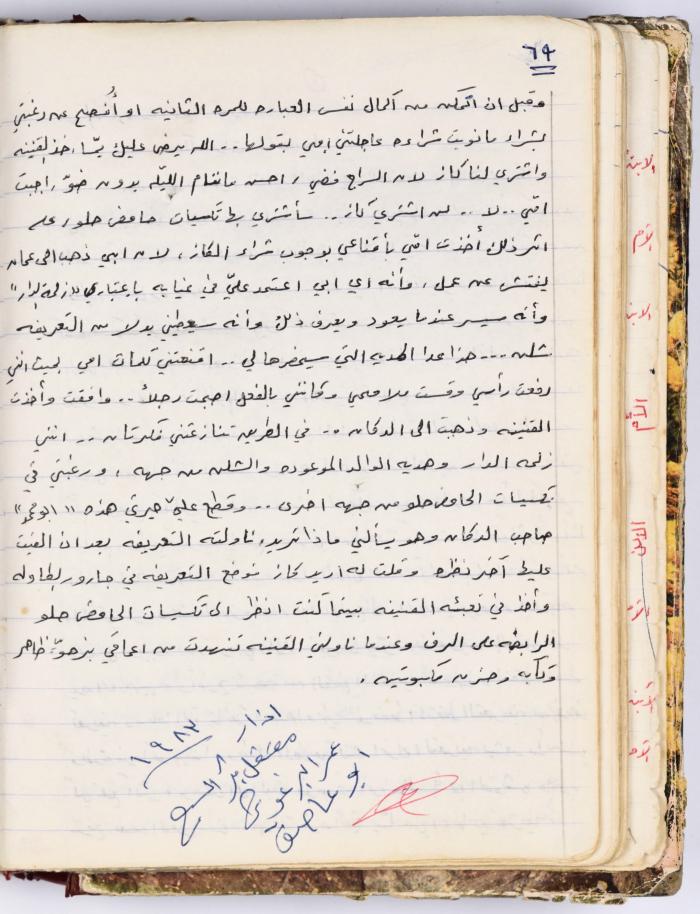 ٦٩
وقبل ان اتمكن من اكمال نفس العباره للمره الثانيه او أُفصح عن رغبتي
بشراء ما نويت شراءه عاجلتني امي بقولها .. الله يرضى عليك يمّا، خذ القنينه
واشتري لنا كاز لان السراج فضي، احسن ما ننام الليّله بدون ضوّ، اجبت
امّي .. لا .. لن اشتري كاز .. سأشتري بها تكسيات حامض حلو، على
اثر ذلك أخذت امّي بأقناعي بوجوب شراء الكاز، لان ابي ذهب الى عمان
يفتش عن عمل، وأنه اي ابي اعتمد عليّ في غيابه باعتباري "زلمة الدار"
وأنه سيسر عندما يعود ويعرف ذلك وأنه سيعطيني بدلا من التعريفه
شلن ... هذا عدا الهديه التي سيحضرها لي .. اقنعتني كلمات امي بحيث انني
رفعت رأسي وقست ملامحي وكأنني بالفعل اصبحت رجلاً .. وافقت وأخذت
القنينه وذهبت الى الدكان .. في الطريق تنازعتني فكرتان .. انني
زلمة الدار وهديه الوالد الموعوده والشلن من جهه، ورغبتي في
تكسيات الحامض حلو من جهه اخرى .. وقطع عليّ حيرتي هذه "ابو
صاحب الدكان وهو يسألني ماذا تريد، ناولته التعريفه بعد ان القيت
عليها آخر نظره وقلت له اريد كاز فوضع التعريفه في جارور الطاوله
وأخذ في تعبئه القنينه بينما كنت انظر الى تكسيات الحامض حلو
الرابضه على الرف وعندما ناولني القنينه تنهدت من اعماقي بزهوّ ظاهر
وكآبه وحزن مكبوتيه.
اذار ١٩٨٣
معتقل بئر السبع
عمر البرغوثي
ابو عاصف
الابن
يوم
الابن
الأم
الابن
يوم